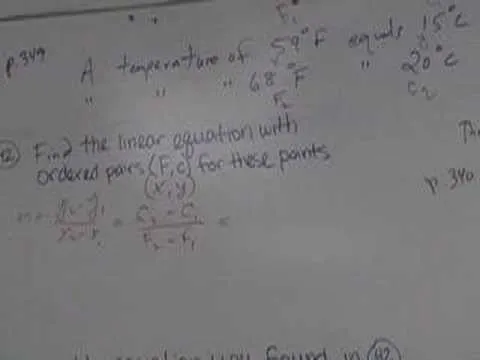 F₁
p.349
A temperature of 59°F equals 15°C
" " " 68°F " 20°C
F₂ C₂
42 Find the linear equation with
ordered pairs (F,C) for these points
(x,y)
m = y₂-y₁ / x₂-x₁ = C₂-C₁ / F₂-F₁ =
p.340
equation you found in 42